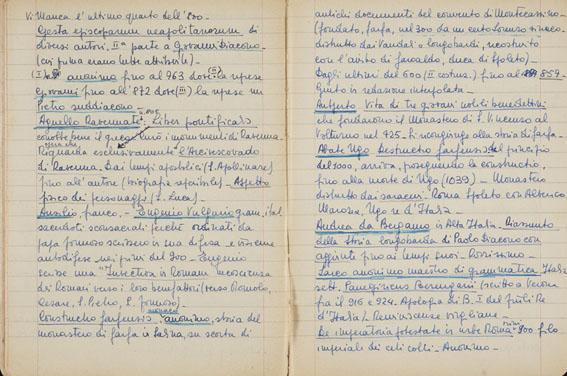 Vi Manca l'ultimo quarto dell'800.
Gesta episcoporum neapolitanorum di
diversi autori. IIª parte a Giovanni Diacono
(cui prima erano tutte attribuite)
(I) anonimo fino al 963 dove (II) la riprese
Giovanni fino all'872 dove (III) la riprese un
Pietro suddiacono -
Agnello Ravennate: Liber pontificalis
conosce bene il greco i monumenti di Ravenna.
Riguarda esclusivamente l'Arcivescovado
di Ravenna. Dai tempi apostolici (S. Apollinare)
fino all'autore (biografie vescovili) - Aspetto
fisico dei personaggi (S. Luca) -
Ausilio, franco, - Eugenio Vulgario gram. ital.
sacerdoti sconsacrati perché ordinati da
papa Formoso scrissero in sua difesa e insieme
autodifese nei primi del 900 - Eugenio
scrisse una "Invectiva in Romam" meoscuranza
dei Romani verso i loro benefattori (verso Romolo,
Cesare, S. Pietro, S. Formoso) -
Constructio farfensis - anonimo, storia del
monastero di Farfa in Sabina, su scorta di
antichi documenti del convento di Montecassino -
(fondato, Farfa, nel 300 da un certo Lorenzo siriaco
distrutto dai Vandali o longobardi, ricostruito
con l'aiuto di Faroaldo, duca di Spoleto) -
Dagli ultimi del 600 (II costruz.) fino al 859 -
Giunto in redazione interpolata -
Autperto Vita di tre giovani nobili benedettini
che fondarono il Monastero di S. Vincenzo al
Volturno nel 725 - Si ricongiunge alla storia di Farfa -
Abate Ugo Destructio farfensis dal principio
del 1000, arriva, proseguendo la constructio,
fino alla morte di Ugo (1039) - Monastero
distrutto dai saraceni. Roma Spoleto con Alberico
Marozia, Ugo re d'Italia -
Andrea da Bergamo in Alta Italia - Riassunto
della Storia longobarda di Paolo Diacono con
aggiunte fino ai tempi suoi - Rozzissimo -
Laico anonimo maestro di grammatica Italia
sett. Panegiricus Berengarii (scritto a Verona
fra il 916 e 924. Apologia di B. I del Friuli Re
d'Italia) - Reminiscenze virgiliane -
De imperatoria potestate in urbe Roma - 900 filo
imperiale dei ceti colti - Anonimo -